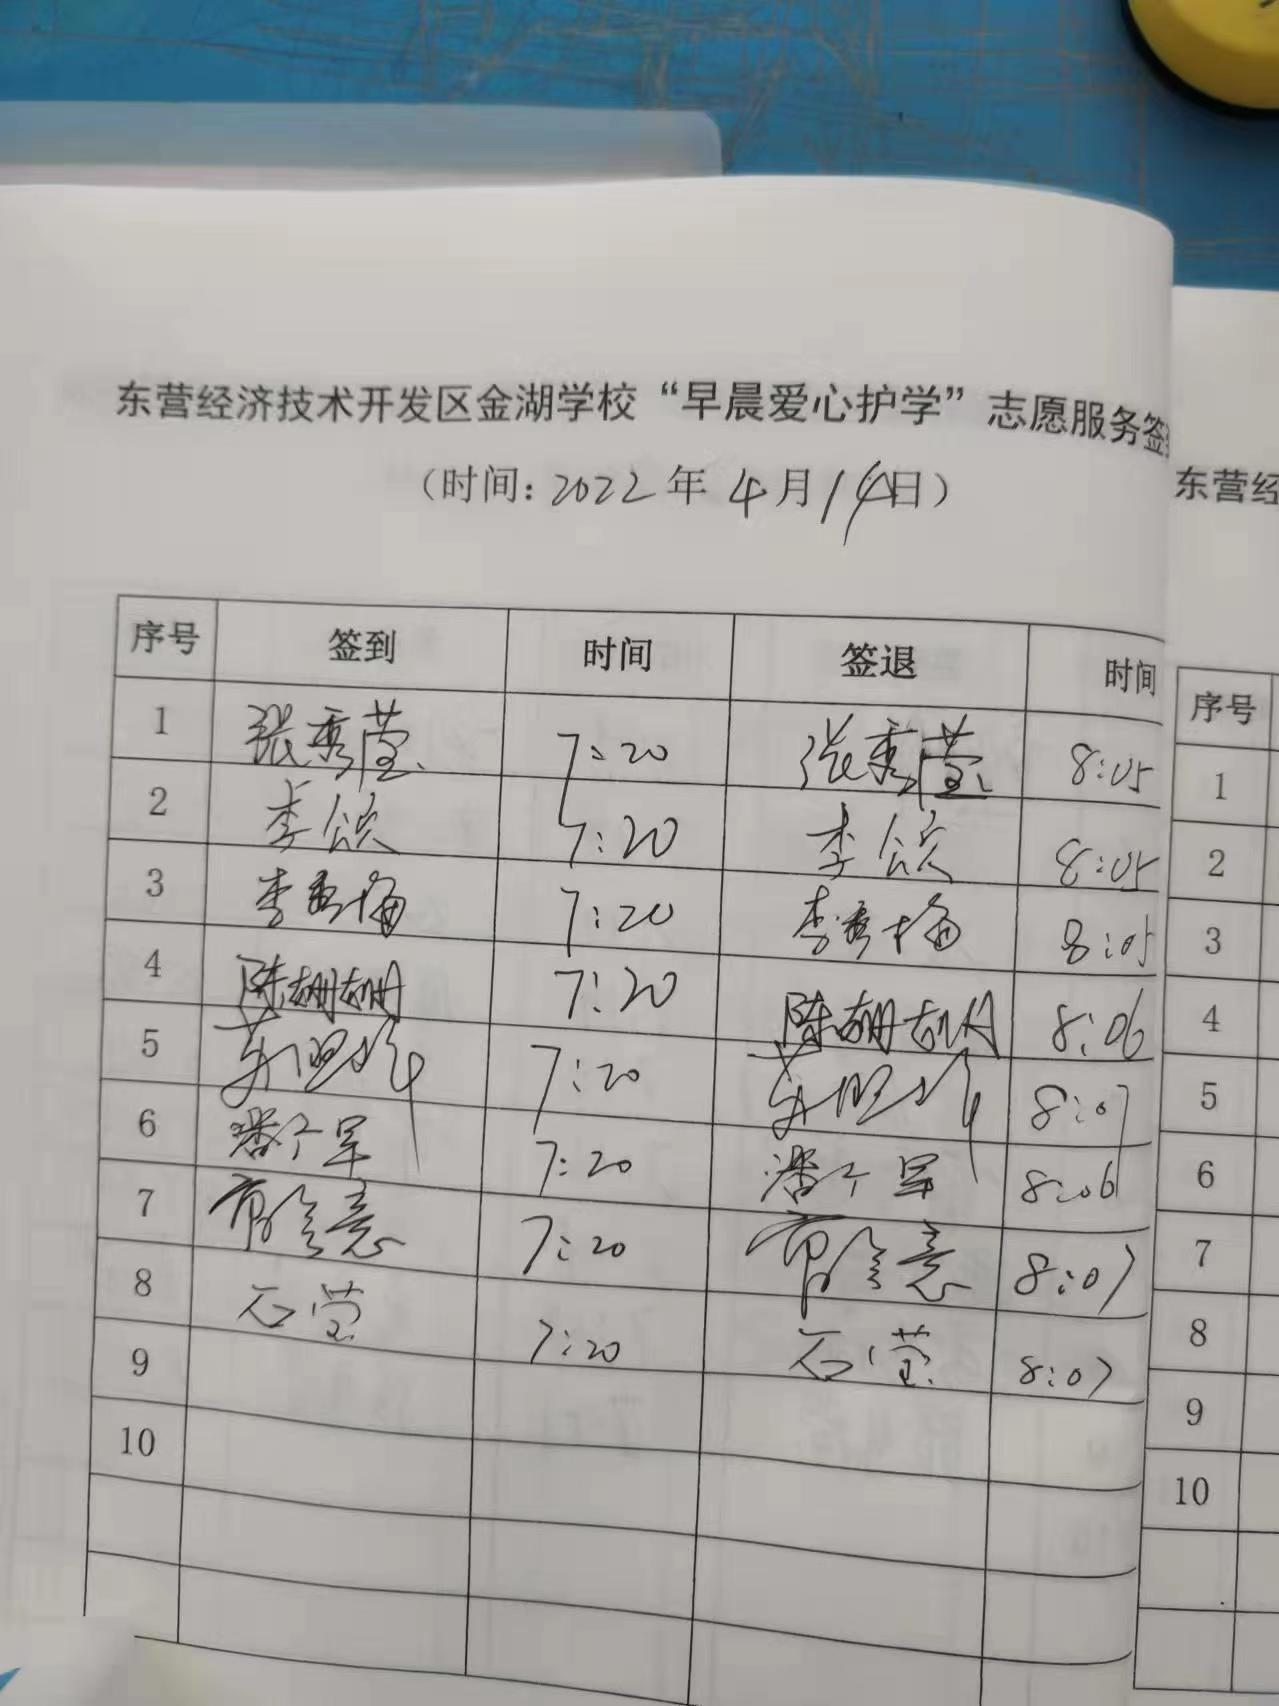 东营经济技术开发区金湖学校“早晨爱心护学”志愿服务签
（时间: 2022 年 4 月 14 日）
序号 签到 时间 签退 时间
1 张秀莹 7:20 张秀莹 8:05
2 李颂 7:20 李颂 8:05
3 李秀梅 7:20 李秀梅 8:05
4 陈姗姗 7:20 陈姗姗 8:06
5 7:20 8:07
6 潘于军 7:20 潘于军 8:06
7 7:20 8:07
8 石莹 7:20 石莹 8:07
9
10
东营经
序号
1
2
3
4
5
6
7
8
9
10